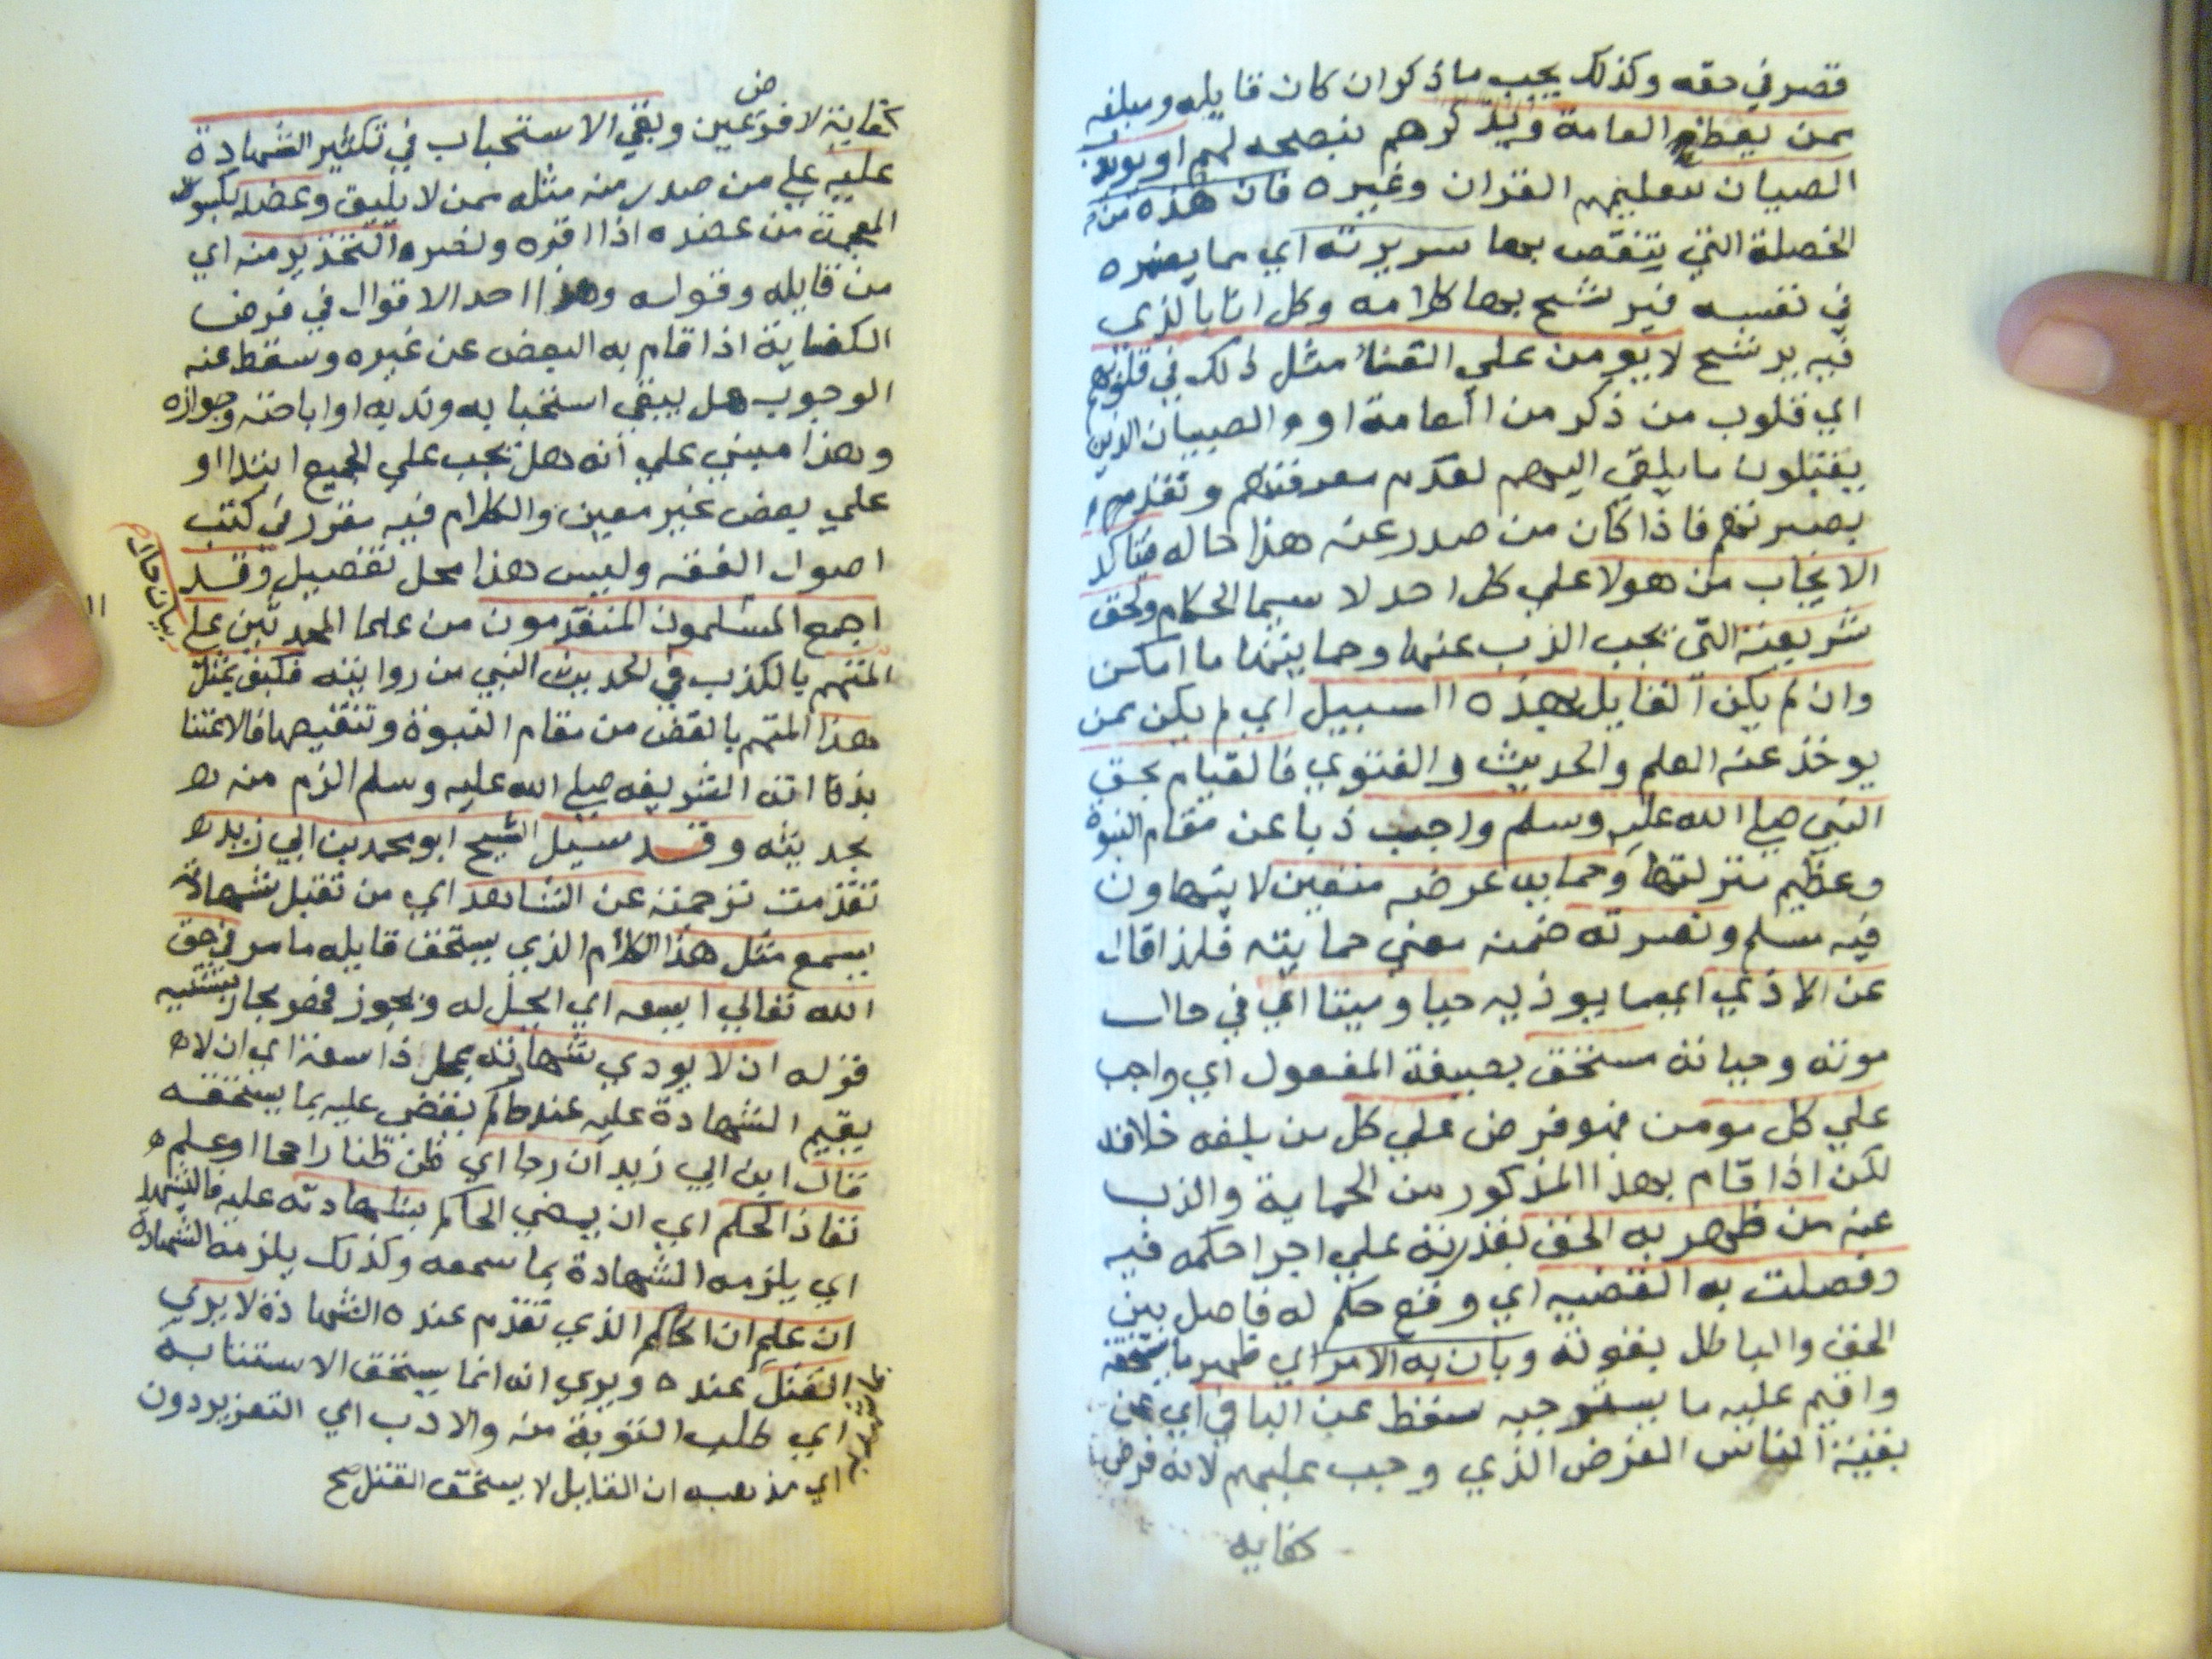 قصر في حقه وكذلك يجب ما ذكر ان كان قايله ومبلغه
ممن يعظ العامة ويذكرهم بنصحه لهم او يودب
الصبيان لتعليمهم القران وغيره فان هذه من
الخصلة التي يتنقص بها سريرته اي ما يضمره
في نفسه فيرشح بها كلامه وكل انا بالذي
فيه يرشح لا يومن علي القاء مثل ذلك في قلوبهم
اي قلوب من ذكر من العامة او الصبيان الذين
يقبلون ما يلقي اليهم لعدم معرفتهم وعدم
بصيرتهم فاذا كان من صدر عنه هذا حاله تاكد
الايجاب من هولا علي كل احد لا سيما الحكام ولحق
شريعته التي يجب الذب عنها وحمايتها ما امكن
وان لم يكن القايل بهذه السبيل اي لم يكن ممن
يوخذ عنه العلم والحديث والفتوي فالقيام بحق
النبي صلي الله عليه وسلم واجب ذبا عن مقام النبوة
وعظيم منزلتها وحماية عرضه متعين لا يتهاون
فيه مسلم ونصرته ضمنه معني حمايته فلذا قال
عن الاذي اي عما يوذيه حيا وميتا اي في حال
موته وحياته مستحق بصيغة المفعول اي واجب
علي كل مومن فهو فرض علي كل من بلغه خلافه
لكن اذا قام بهذا المذكور من الحماية والذب
عنه من ظهر به الحق بقدرته علي اجرا حكمه فيه
وفصلت به القضيه اي وقع حكم له فاصل بين
الحق والباطل بقوته وبان به الامر اي ظهر ما يستحقه
واقيم عليه ما يستوجبه سقط عن الباقي اي عن
بقية الناس الفرض الذي وجب عليهم لانه فرض
كفايه
كفاية لا فرض عين وبقي الاستحباب في تكثير الشهادة
عليه علي من صدر منه مثله ممن لا يليق وعضد بكبون
المعجمة من عضده اذا اقره ونصره التحذير منه اي
من قايله وقوله وهذا احد الاقوال في فرض
الكفاية اذا قام به البعض عن غيره وسقط عنه
الوجوب هل يبقي استحبابه وندبه او اباحته وجوازه
وهذا مبني علي انه هل يجب علي الجميع ابتدا او
علي بعض غير معين والكلام فيه مقرر في كتب
اصول الفقه وليس هذا محل تفصيل وقد
اجمع المسلمون المتقدمون من علما المحدثين علي
بيان حال
المتهم بالكذب في الحديث النبي من روايته فكيف بمثل
هذا المتهم بالغض من مقام النبوة وتنقيصها فالاعتنا
بذاته الشريفه صلي الله عليه وسلم الزم منه
بحديثه وقد سيل الشيخ ابو محمد بن ابي زيد
تقدمت ترجمته عن الشاهد اي من تقبل شهادته
يسمع مثل هذا الكلام الذي يستحق قايله ما مر في حق
الله تعالي ايسعه اي ايحل له ويجوز فهو مجاز بتشبيه
قوله ان لا يودي شهادته بمحل ذا سعة اي ان لا
يقيم الشهادة عليه عند حاكم يقضي عليه بما يستحقه
قال ابن ابي زيد ان رجا اي ظن ظنا راجحا او علم
نفاذ الحكم اي ان يمضي الحاكم بشهادته عليه فاليشهد
اي يلزمه الشهادة بما سمعه وكذلك يلزمه الشهادة
ان علم ان الحاكم الذي تقدم عنده الشهادة لا يري
القتل عنده ويري انه انما يستحق الاستتابه
اي طلب التوبة منه والادب اي التعزير دون
اي مذهبه ان القايل لا يستحق القتل صح